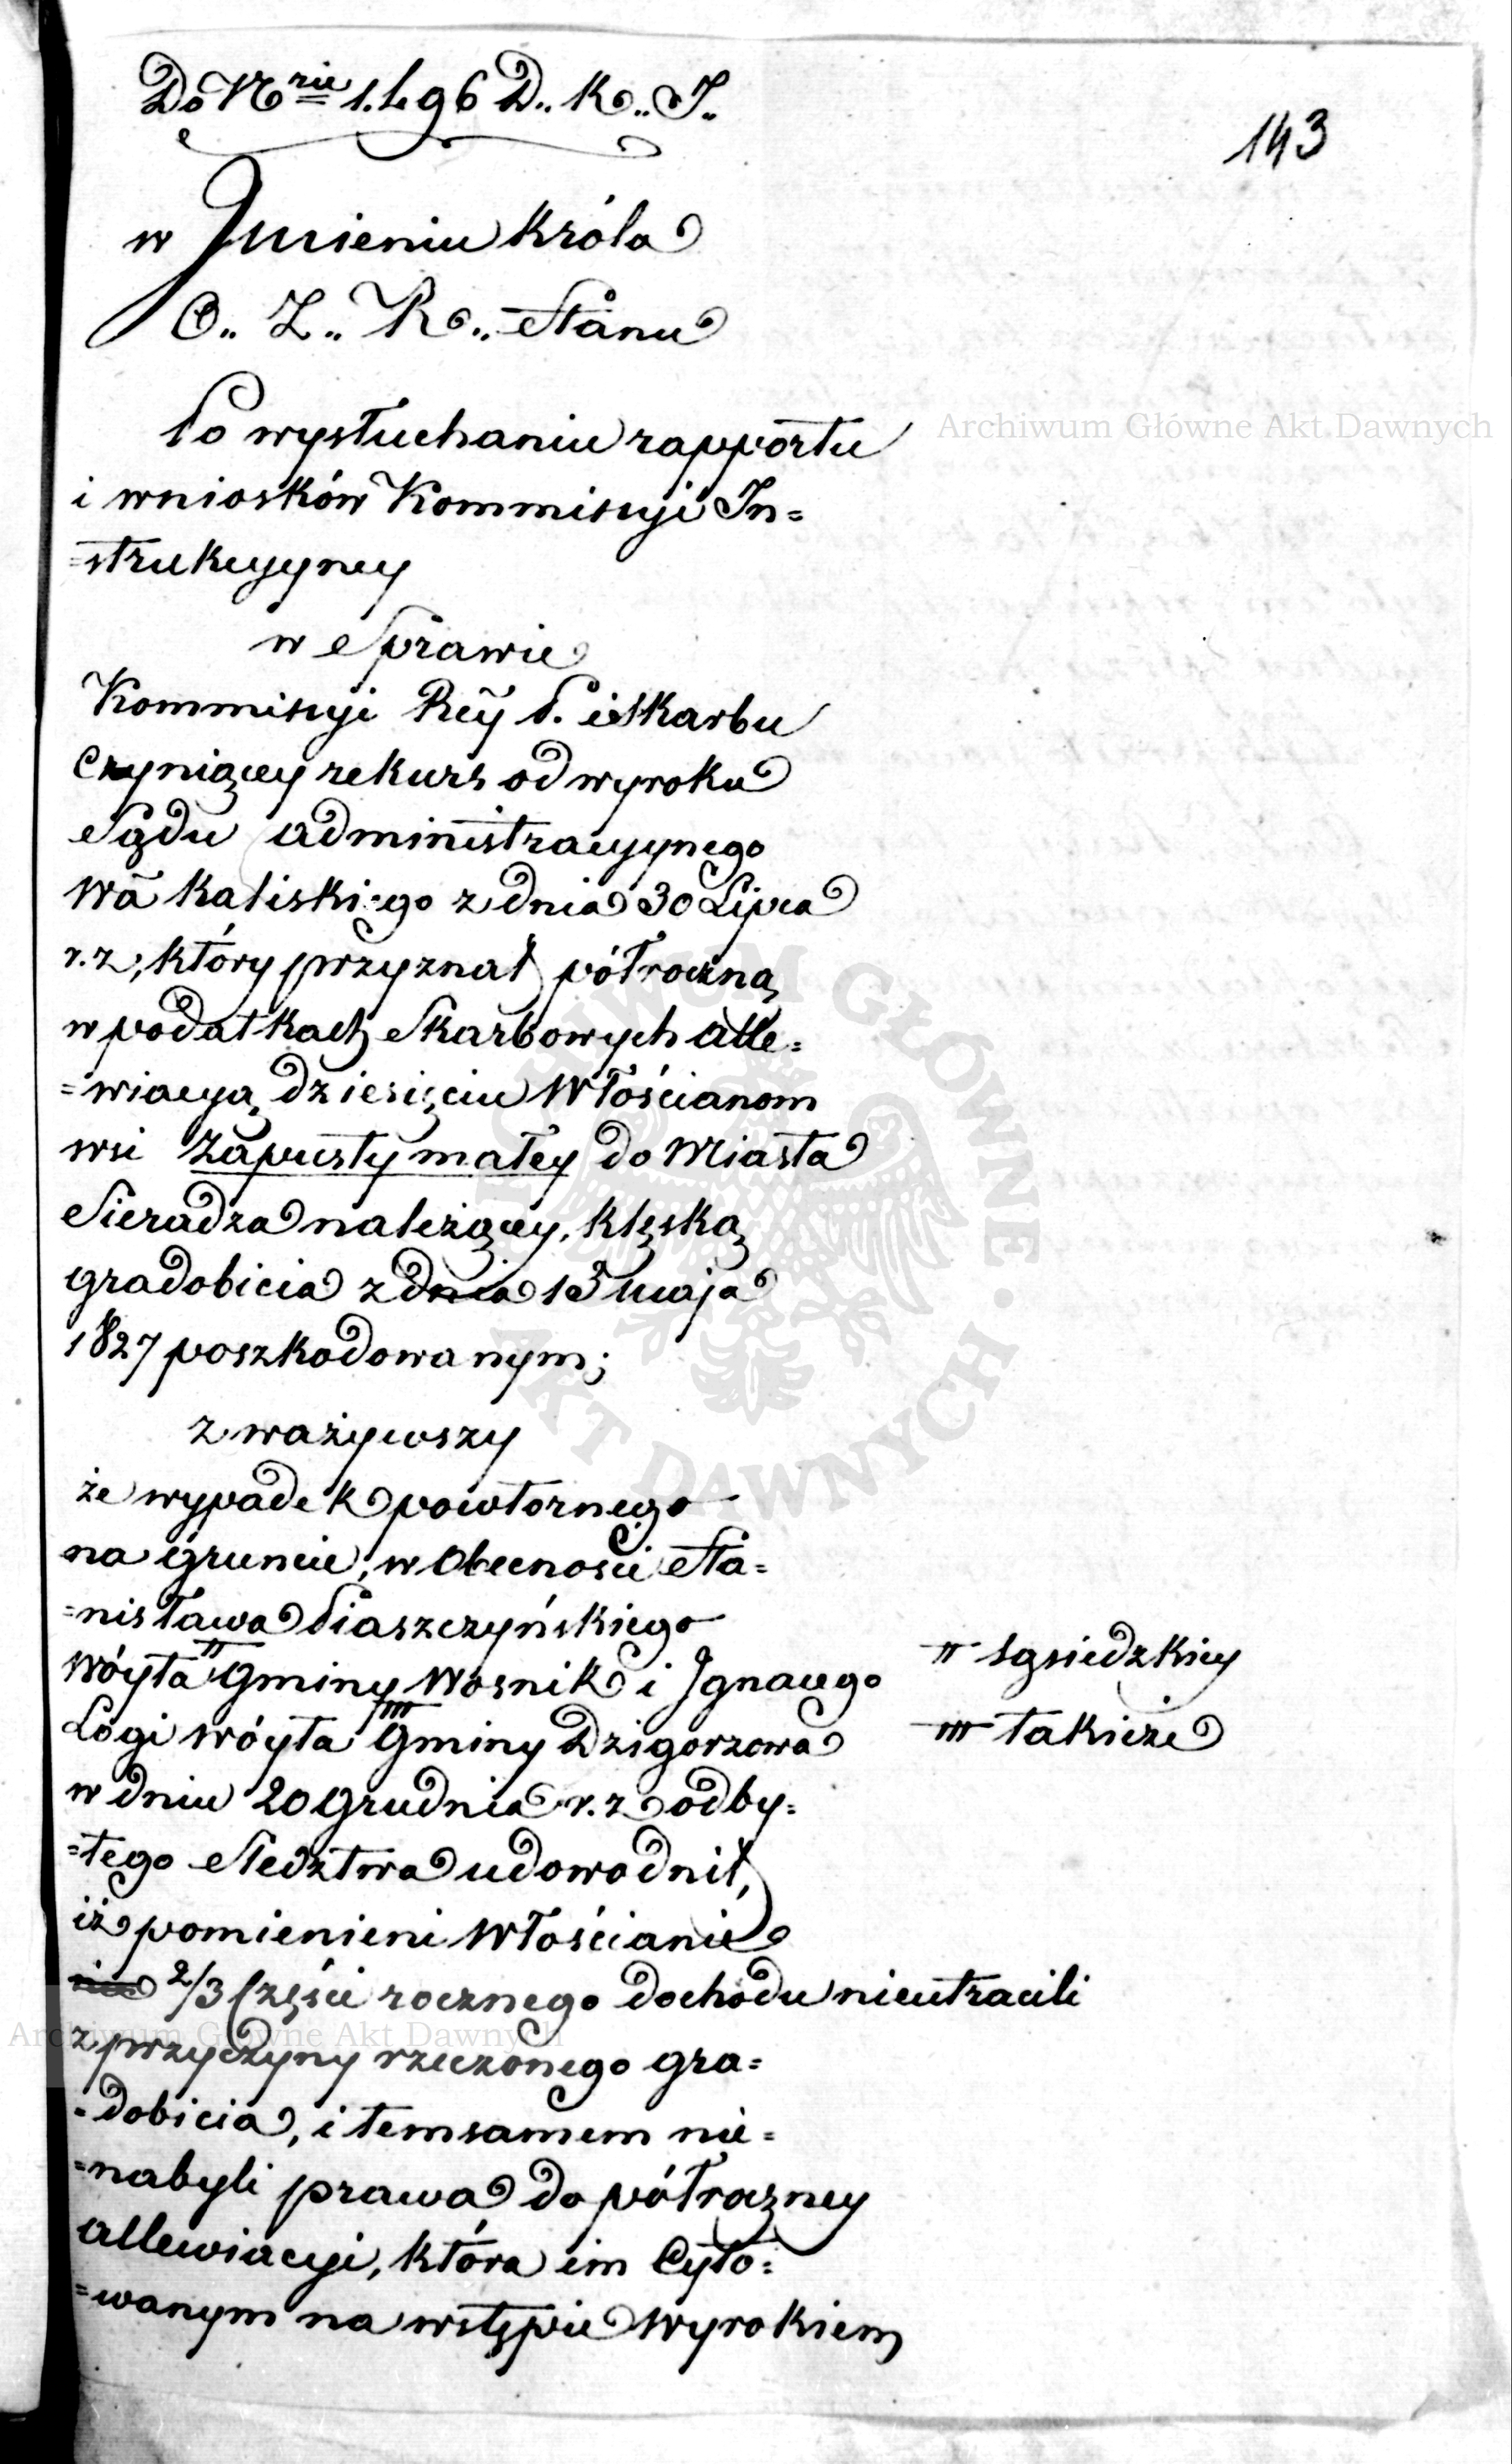 Do Nrie 1.496 D.. K.. I..
143
w Jmieniu Króla
O.. Z.. R.. Stanu
Po wysłuchaniu rapportu
i wniosków Kommissyi In=
=strukcyyney
w Sprawie
Kommissyi Rey P. i Skarbu
czyniącey rekurs od wyroku
Sądu administracyynego
Wa Kaliskiego z dnia 30 Lipca
r.z, który przyznał półroczną
w podatkach Skarbowych alle=
=wiacyą dziesięciu Włościanom
wsi Zapusty małey do Miasta
Sieradza należącey, klęską
gradobicia z dnia 13 maja
1827 poszkodowanym;
zważywszy
że wypadek powtornego
na gruncie, w Obecności Sta=
=nisława Piaszczyńskiego
Wóyta # Gminy Wosnik i Jgnacego
# Sąsiedzkiey
Łogi wóyta # Gminy Dzigorzowa
# takieże
w dniu 20 Grudnia r.z odby=
=tego Sledztwa udowodnił,
iż pomienieni Włościanie
nie 2/3 Części rocznego dochodu nieutracili
z przyczyny rzeczonego gra=
=dobicia, i temsamem nie=
=nabyli prawa do półroczney
allewiacyi, która im Cyto=
=wanym na wstępie Wyrokiem
Archiwum Główne Akt Dawnych
ARCHIWUM GŁÓWNE AKT DAWNYCH
Archiwum Główne Akt Dawnych